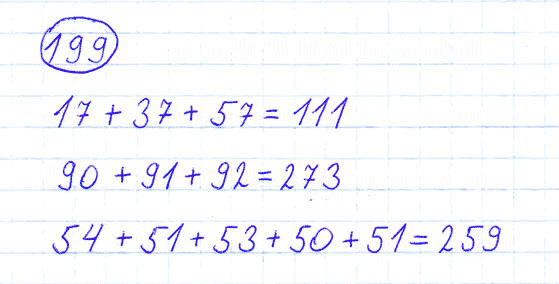 199
17 + 37 + 57 = 111
90 + 91 + 92 = 273
54 + 51 + 53 + 50 + 51 = 259